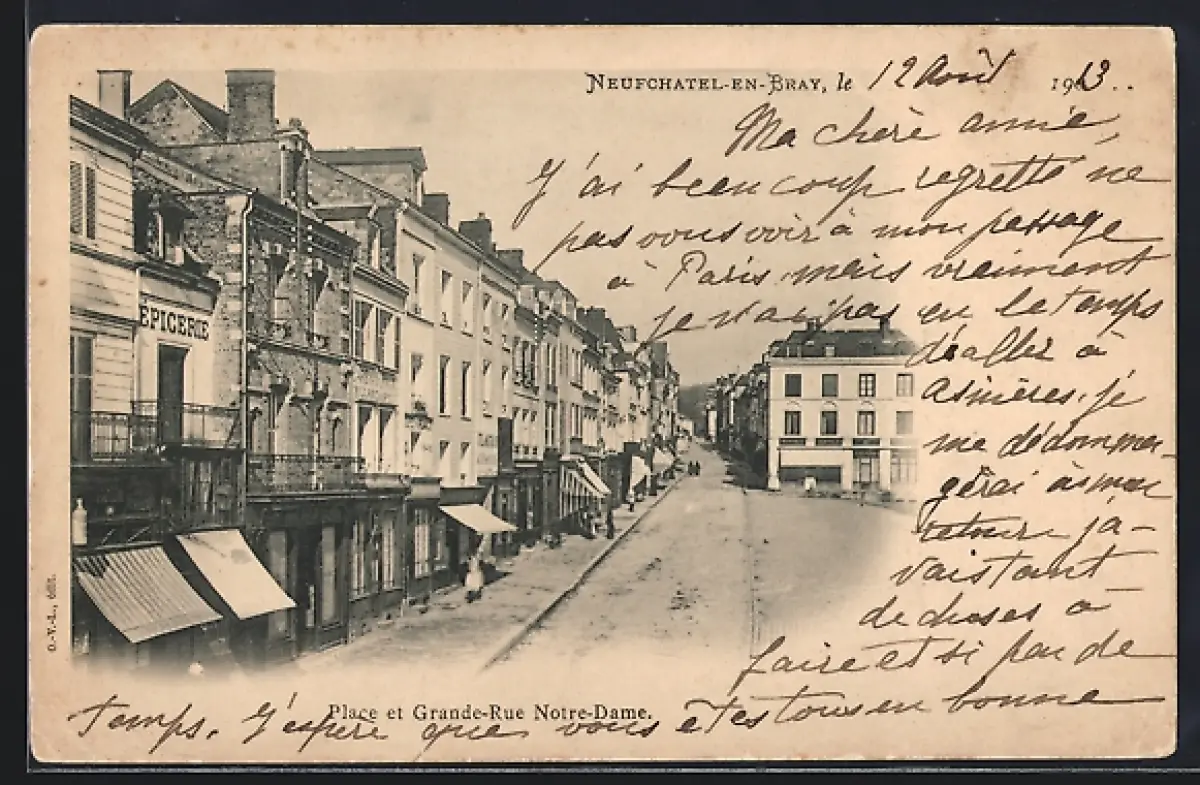 NEUFCHATEL-EN-BRAY, le 12 Août 1903..
Ma chère amie,
J'ai beaucoup regretté ne
pas vous voir à mon passage
à Paris, mais vraiment
je n'ai pas eu le temps
d'aller à
Asnières. je
me dédomma-
gerai à mon
retour j'a-
vais tant
de choses à
faire et si peu de
temps. J'espère que vous êtes tous en bonne
EPICERIE
Place et Grande-Rue Notre-Dame.
O.-V.-L., édit.